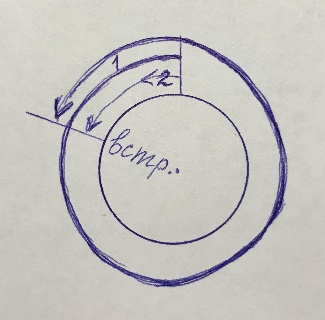 1
2
встр.